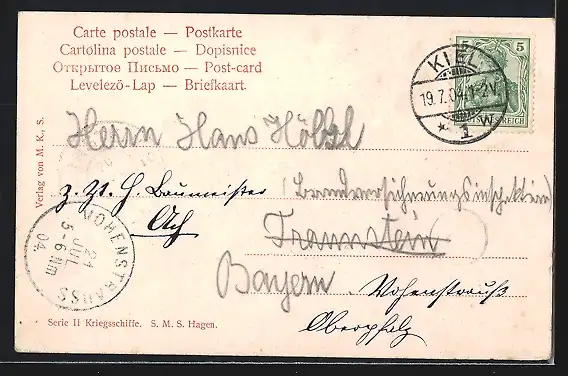 Carte postale — Postkarte
Cartolina postale — Dopisnice
Открытое Письмо — Post-card
Levelezö-Lap — Briefkaart.
5 5
REICH
KIEL
19.7.04.1-2V.
* 1 W
Verlag von M. K., S.
Herrn Hans Hölzl
z. Zt. H. Baumeister (Brandversicherungsinspektion)
Traunstein
Bayern
Vohenstrauß
Oberpfalz
VOHENSTRAUSS
21
JUL
5-6 Nm
04.
Serie II Kriegsschiffe. S. M. S. Hagen.